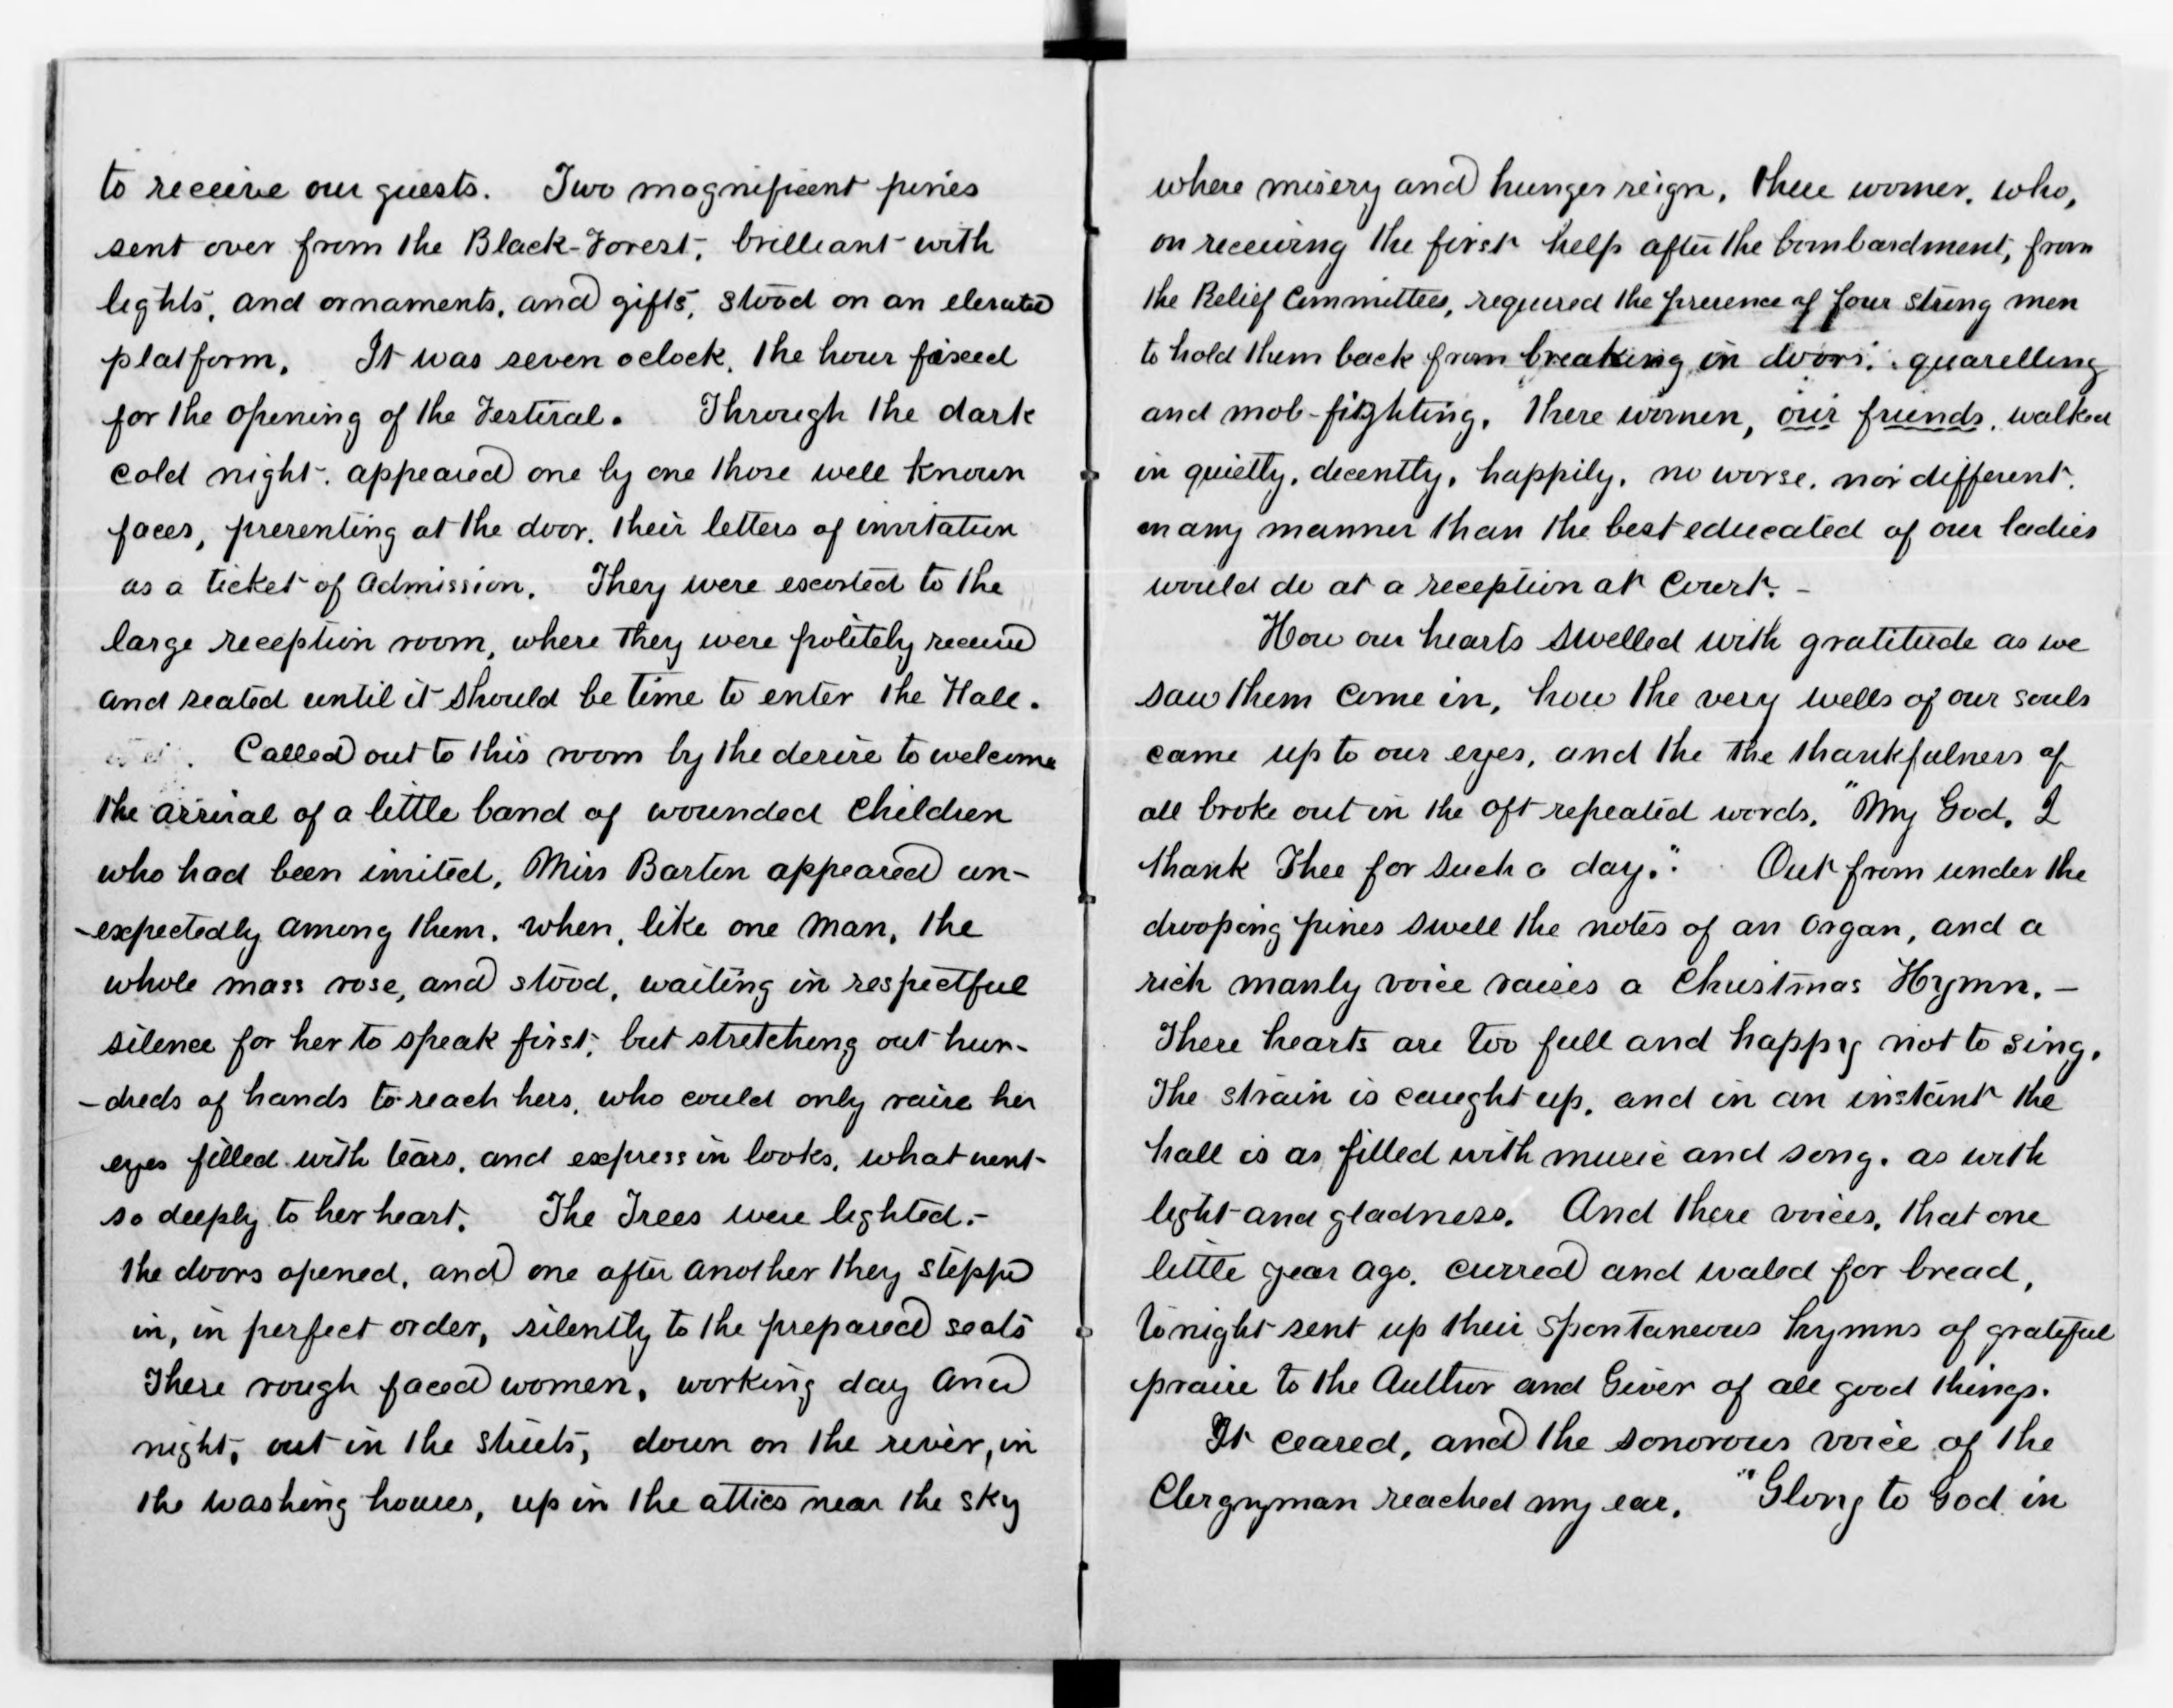 to receive our guests. Two magnificent pines
sent over from the Black-Forest, brilliant with
lights, and ornaments, and gifts, stood on an elevated
platform. It was seven oclock, the hour fixed
for the opening of the Festival. Through the dark
cold night, appeared one by one those well known
faces, presenting at the door, their letters of invitation
as a ticket of admission. They were escorted to the
large reception room, where they were politely received
and seated until it should be time to enter the Hall.
Called out to this room by the desire to welcome
the arrival of a little band of wounded children
who had been invited, Miss Barton appeared un-
-expectedly among them, when, like one man, the
whole mass rose, and stood, waiting in respectful
silence for her to speak first, but stretching out hun-
-dreds of hands to reach hers, who could only raise her
eyes filled with tears, and express in looks, what went
so deeply to her heart. The Trees were lighted.-
the doors opened, and one after another they stepped
in, in perfect order, silently to the prepared seats
These rough faced women, working day and
night, out in the streets, down on the river, in
the washing houses, up in the attics near the sky
where misery and hunger reign, these women, who,
on receiving the first help after the bombardment, from
the Relief Committees, required the presence of four strong men
to hold them back from breaking in doors, quarelling
and mob-fighting. These women, our friends, walked
in quietly, decently, happily, no worse, nor different,
in any manner than the best educated of our ladies
would do at a reception at Court. -
How our hearts swelled with gratitude as we
saw them come in, how the very wells of our souls
came up to our eyes, and the the thankfulness of
all broke out in the oft repeated words, "My God, I
thank Thee for such a day." Out from under the
drooping pines swell the notes of an organ, and a
rich manly voice raises a Christmas Hymn. -
These hearts are too full and happy not to sing.
The strain is caught up, and in an instant the
hall is as filled with music and song, as with
light and gladness. And these voices, that one
little year ago, cursed and waled for bread,
tonight sent up their spontaneous hymns of grateful
praise to the Author and Giver of all good things.
It ceased, and the sonorous voice of the
Clergyman reached my ear, "Glory to God in